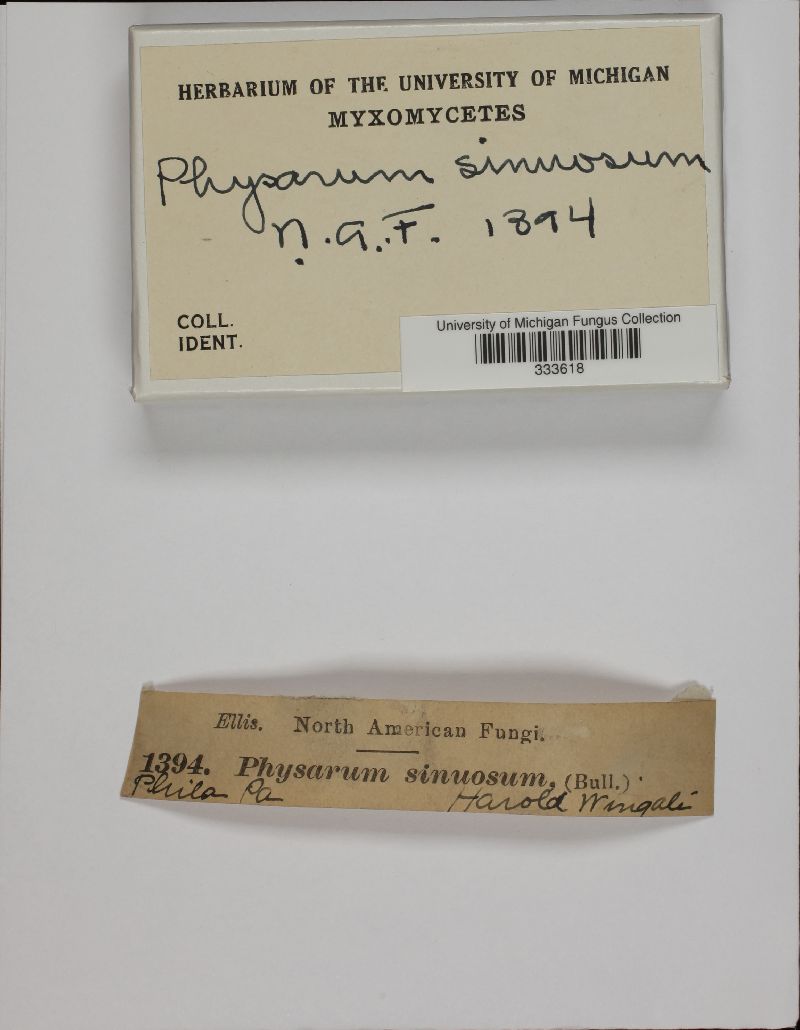 HERBARIUM OF THE UNIVERSITY OF MICHIGAN
MYXOMYCETES
Physarum sinuosum
N.A.F. 1394
COLL.
IDENT.
University of Michigan Fungus Collection
333618
Ellis. North American Fungi.
1394. Physarum sinuosum, (Bull.)
Phila Pa Harold Wingate